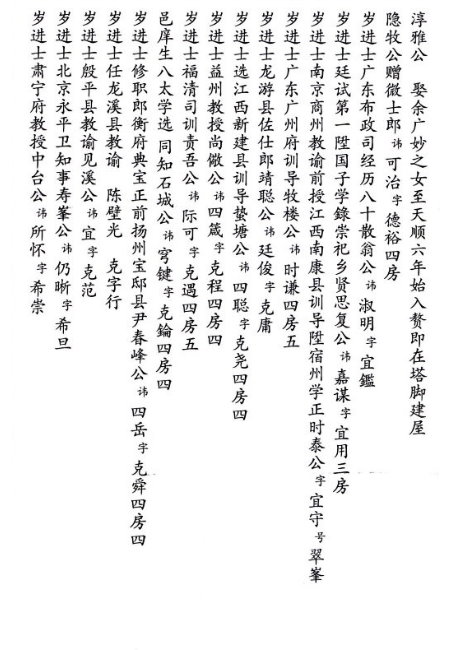 淳雅公　娶余广妙之女至天顺六年始入赘即在塔脚建屋
隐牧公赠徵士郎讳可治字德裕四房
岁进士广东布政司经历八十散翁公讳淑明字宜鑑
岁进士廷试第一陞国子学錄崇祀乡贤思复公讳嘉谋字宜用三房
岁进士南京商州教谕前授江西南康县训导陞宿州学正时泰公字宜守号翠峯
岁进士广东广州府训导牧楼公讳时谦四房五
岁进士龙游县佐仕郎靖聪公讳廷俊字克庸
岁进士选江西新建县训导垫塘公讳四聪字克尧四房四
岁进士益州教授尚徽公讳四箴字克程四房四
岁进士福清司训责吾公讳际可字克遇四房五
邑庠生八太学选同知石城公讳穹键字克錀四房四
岁进士修职郎衡府典宝正前扬州宝邸县尹春峰公讳四岳字克舜四房四
岁进士任龙溪县教谕　陈壁光　克字行
岁进士殷平县教谕见溪公讳宜字克范
岁进士北京永平卫知事寿峯公讳仍晰字希旦
岁进士肃宁府教授中台公讳所怀字希崇